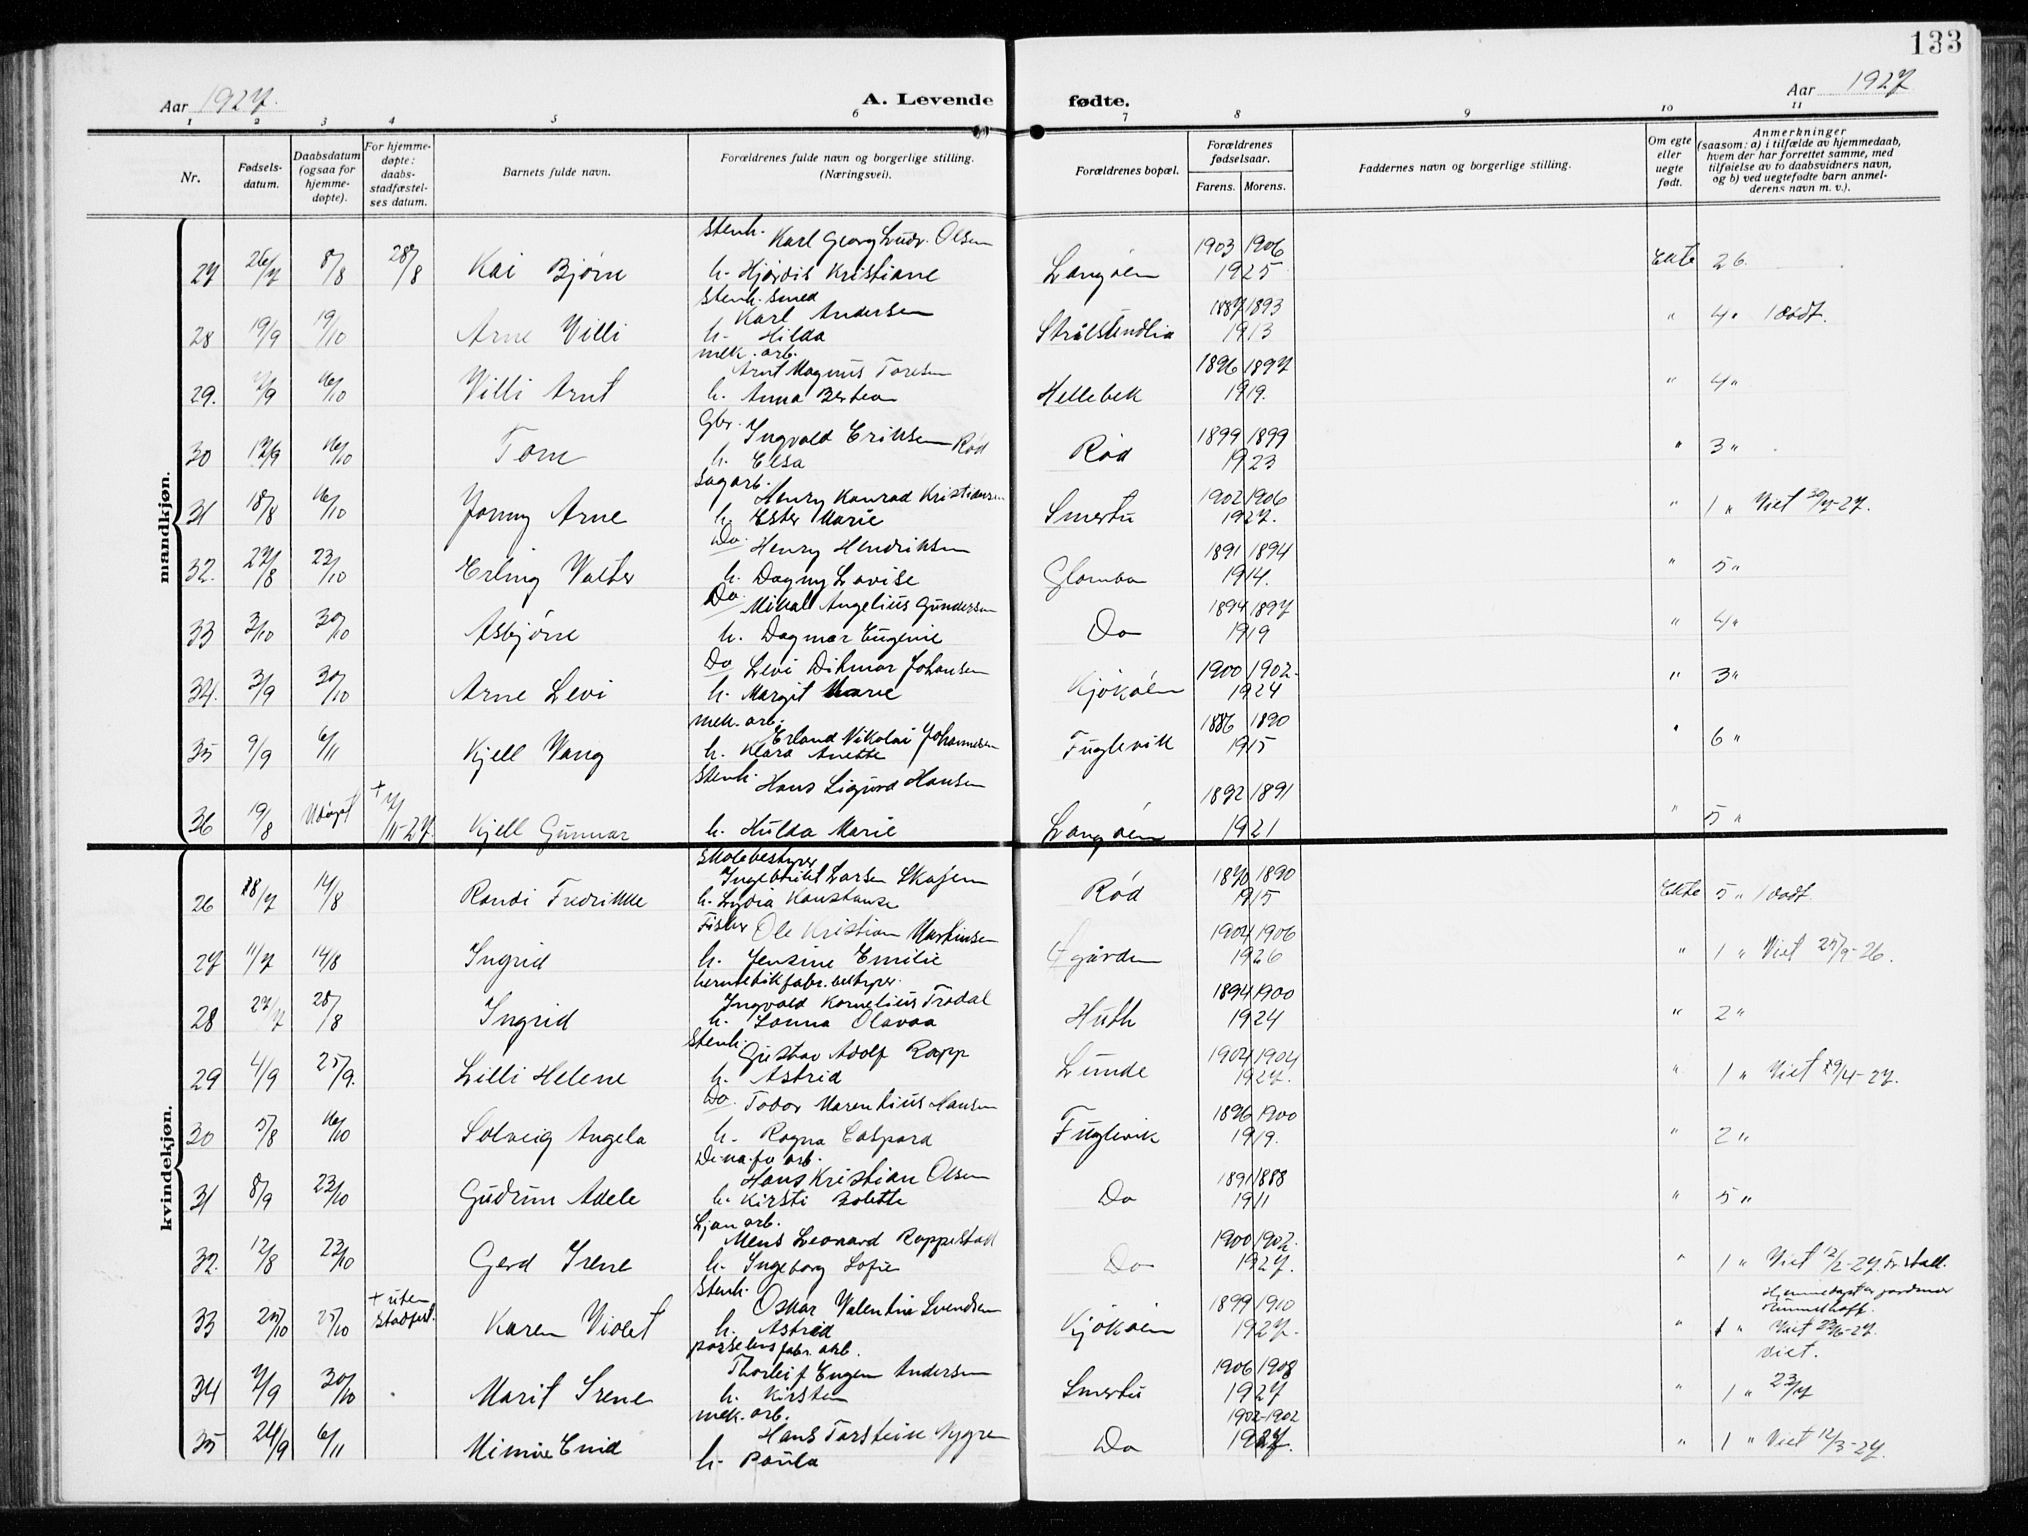 133
Aar 1927.
A. Levende fødte.
Aar 1927
1 2 3 4 5 6 7 8 9 10 11
Nr.
Fødsels-
datum.
Daabsdatum
(ogsaa for
hjemme-
døpte).
For hjemme-
døpte:
daabs-
stadfæstel-
ses datum.
Barnets fulde navn.
Forældrenes fulde navn og borgerlige stilling.
(Næringsvei).
Forældrenes bopæl.
Forældrenes
fødselsaar.
Farens. Morens.
Faddernes navn og borgerlige stilling.
Om egte
eller
uegte
født.
Anmerkninger
(saasom: a) i tilfælde av hjemmedaab,
hvem der har forrettet samme, med
tilføielse av to daabsvidners navn,
og b) ved uegtefødte barn anmel-
derens navn m. v.).
mandkjøn.
Stenh. Karl Georg Ludv. Olsen 1903 1906
27 26/7 8/8 28/8 Kai Bjørn h. Hjørdis Kristiane Langøen 1925 Ekte 26.
Stenh. smed
Karl Andersen 1887 1893
28 19/9 19/10 Arne Villi h. Hilda 1913 " 4 " 1 dødf.
mek. arb.
Arnt Magnus Toresen 1896 1897
29. 7/9 16/10 Villi Arnt h. Anna Bertea Hellebek 1919. " 4 "
Gbr. Ingvald Eriksen Rød 1899 1899
30 17/9 16/10 Tom h. Elsa Rød 1923 " 3 "
Sagarb.
Henry Konrad Kristiansen 1902 1906
31 18/8 16/10 Jonny Arne h. Ester Marie Smertu 1927. " 1 " Viet 30/7-27.
Do. Henry Hendriksen 1891 1894
32. 27/8 23/10 Erling Valter h. Dagny Lovise Glombo 1914. " 5 "
Do. Mikal Angelius Gundersen 1894 1897
33 3/10 30/10 Asbjørn h. Dagmar Eugenie Do 1919 " 4 "
Do Levi Ditmar Johansen 1900 1902.
34. 3/9 30/10 Arne Levi h. Margit Marie Kjøkøen 1924 " 3 "
mek. arb.
Erland Nikolai Johannesen 1886 1890
35 9/9 6/11 Kjell Vang h. Klara Anette Fuglevik 1915 " 6 "
Stenh. Hans Sigurd Hansen 1892 1891
36 19/8 Udøpt + 7/11-27. Kjell Gunnar h. Hulda Marie Langøen 1921 " 5 "
kvindekjøn.
Skolebestyrer
Ingebrikt Larsen Skajem 1870 1890
26 18/7 14/8 Randi Fredrikke h. Lydia Konstanse Rød 1915 Ekte 5 " 1 dødf.
Fisker Ole Kristian Martinsen 1904 1906
27 11/7 14/8 Ingrid h. Jensine Emilie Øgården 1926 " 1 " Viet 25/9-26.
hermetikfabr. bestyrer.
Ingvald Kornelius Trodal 1894 1900
28 27/7 28/8 Ingrid h. Lonna Olavaa Huth 1924 " 2 "
Stenh. Gustav Adolf Rapp 1904 1904
29 4/9 25/9. Lilli Helene h. Astrid Lunde 1927. " 1 " Viet 29/4-27.
Do. Todor Marentius Hansen 1896 1900
30 5/8 16/10 Solveig Angela h. Ragna Caspara Fuglevik 1919. " 2 "
Hans Kristian Olsen 1891 1888
31 8/9 23/10 Gudrun Adele h. Kirsti Bolette Do 1911 " 5 "
arb.
Mens Leonard Roppestad 1900 1902.
32. 12/8 23/10 Gerd Irene h. Ingeborg Sofie Do 1927. " 1 " Viet 12/2-27.
Stenh. Oskar Valentin Svendsen 1899 1910
33 25/10 25/10 + uten stadfest. Karen Violet h. Astrid Kjøkøen 1927. " 1 " Viet 22/6-27.
Hjemmedøpt av jordmor
porselensfabr. arb.
Thorleif Eugen Andersen 1906 1908 Viet.
34 7/9 30/10 Marit Irene h. Kirsten Smertu 1927 " 1 " 23/7
mek. arb.
Hans Torstein Nygren 1902-1902
35 24/9 6/11 Mimie Enid h. Paula Do 1927. " 1 " Viet 12/3-27.